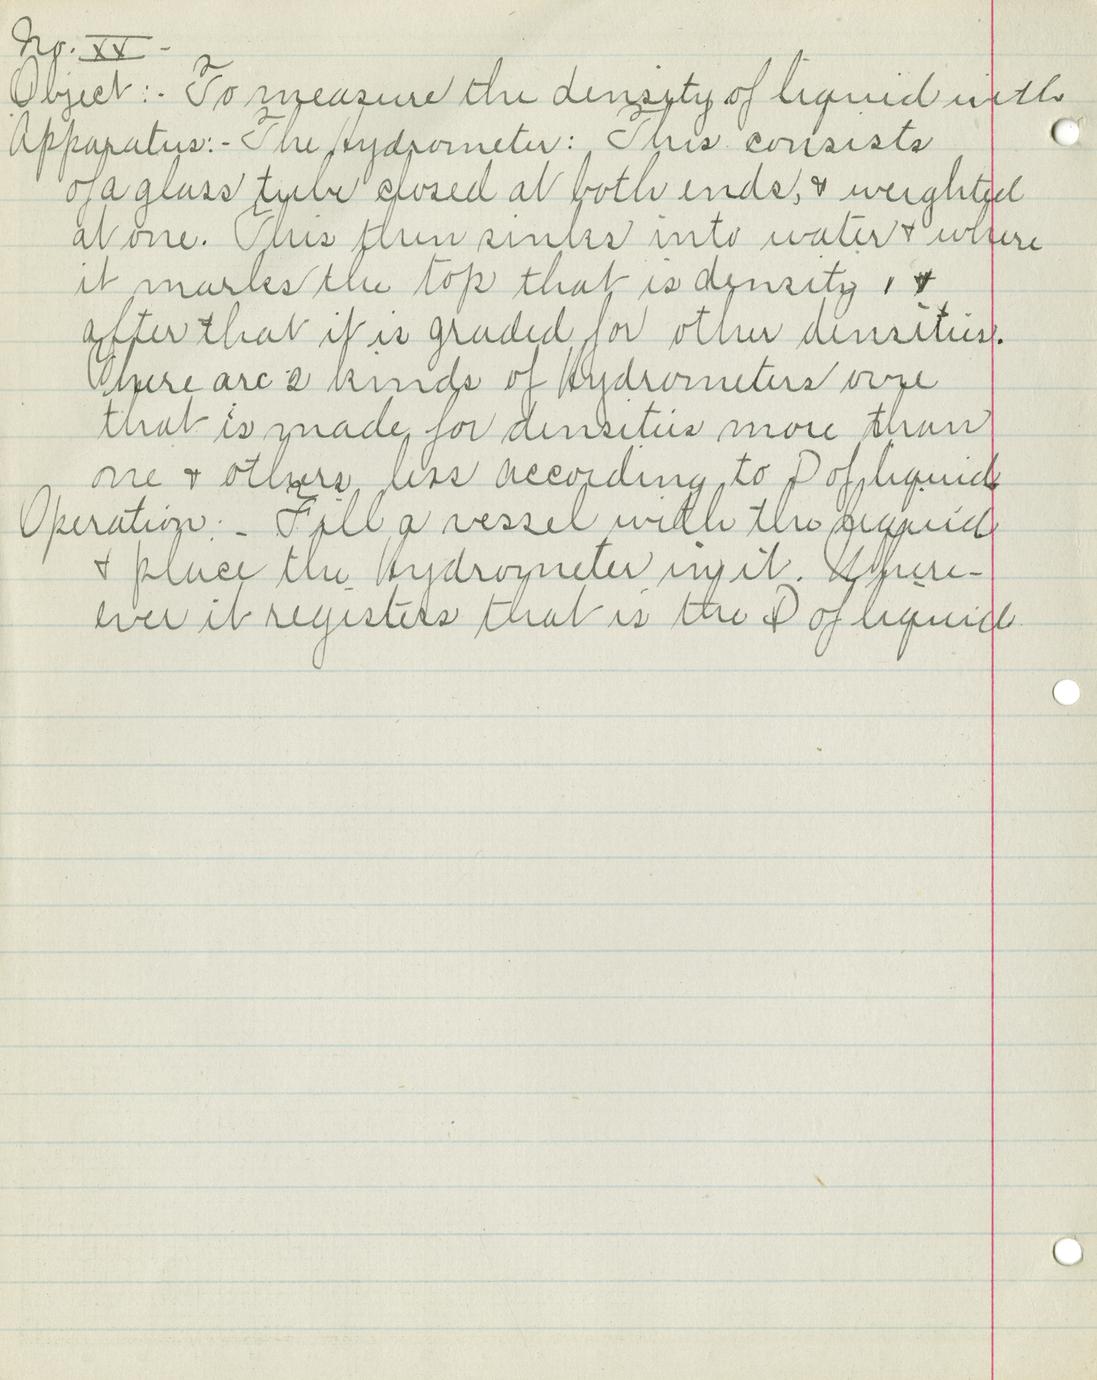 No. XX -
Object:- To measure the density of liquid with
Apparatus:- The Hydrometer: This consists
of a glass tube closed at both ends, & weighted
at one. This then sinks into water & where
it marks the top that is density 1 &
after that it is graded for other densities.
There are 2 kinds of Hydrometers one
that is made for densities more than
one & others less according to D of liquid
Operation:- Fill a vessel with the liquid
& place the Hydrometer in it. Where-
ever it registers that is the D of liquid